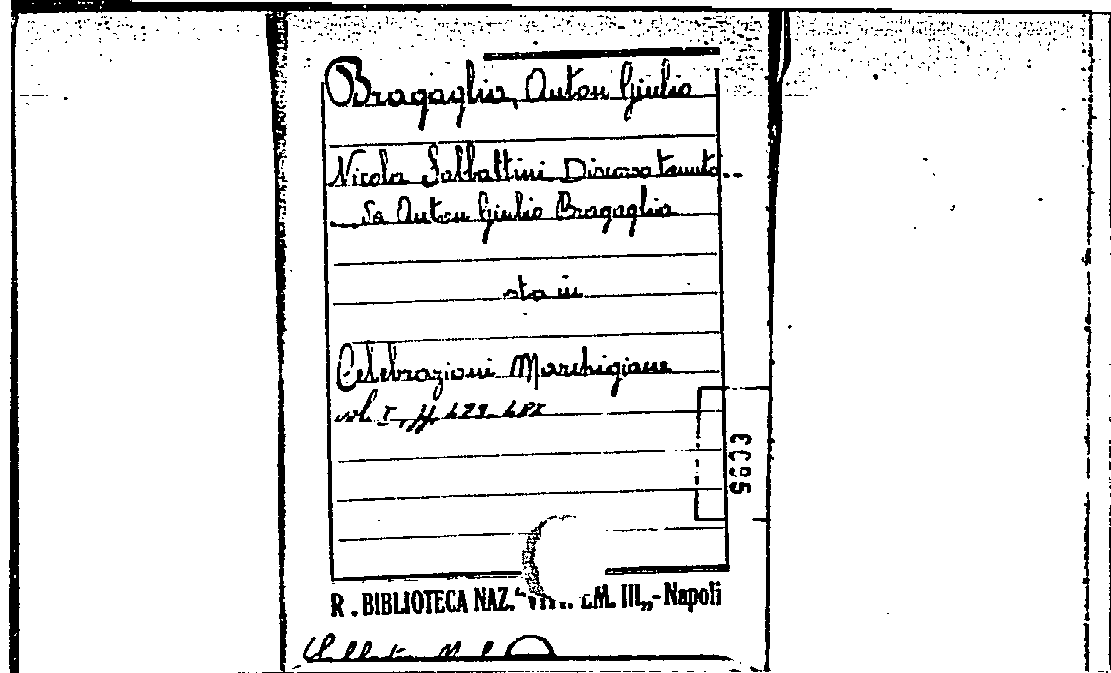 Bragaglia, Anton Giulio
Nicola Sabbattini Discorso tenuto
da Anton Giulio Bragaglia
sta in
Celebrazioni Marchigiane
vol. I, pp.
R. BIBLIOTECA NAZ. EM. III„ - Napoli